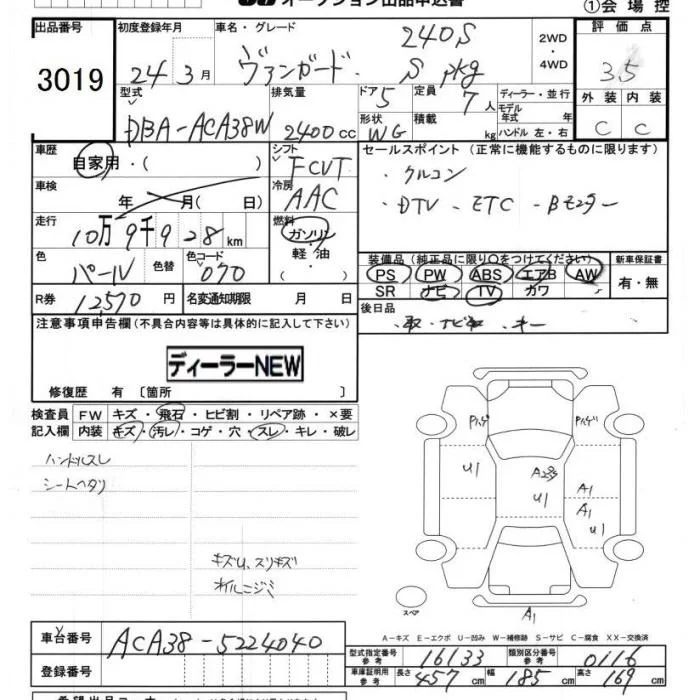 オークション出品申込書
①会場控
出品番号 3019
初度登録年月 24年3月
車名・グレード ヴァンガード 240S S pkg
2WD・4WD
評価点 3.5
外装 C 内装 C
型式 DBA-ACA38W
排気量 2400cc
ドア 5 形状 WG
定員 7人 積載 kg
ディーラー・並行
モデル年式 年式
ハンドル 左・右
車歴 自家用・( )
シフト FCVT
セールスポイント (正常に機能するものに限ります)
・クルコン
・DTV - ETC - Bモニター
車検 年 月( 日)
冷房 AAC
走行 10万9千928km
燃料 ガソリン・軽油・( )
色 パール 色替 色コード 070
装備品 (純正品に限り○をつけてください) 新車保証書
PS PW ABS エアB AW
SR ナビ TV カワ
有・無
R券 12,570円 名変通知期限 月 日
後日品
・取・ナビ取・キー
注意事項申告欄(不具合内容等は具体的に記入して下さい)
ディーラーNEW
修復歴 有 〔箇所 〕
検査員記入欄
FW キズ・飛石・ヒビ割・リペア跡・×要
内装 キズ・汚レ・コゲ・穴・スレ・キレ・破レ
ハンドルスレ
シートヘタリ
キズU、スリキズ
オイルニジミ
Pハゲ Pハゲ
U1 A2 U1 A1 A1 U1
スペア
A1
A-キズ E-エクボ U-凹み W-補修跡 S-サビ C-腐食 XX-交換済
車台番号 ACA38-5224040
登録番号
型式指定番号 参考 16133
類別区分番号 参考 0116
車庫証明用 参考 長さ 457cm 幅 185cm 高さ 169cm
希望出品コーナー